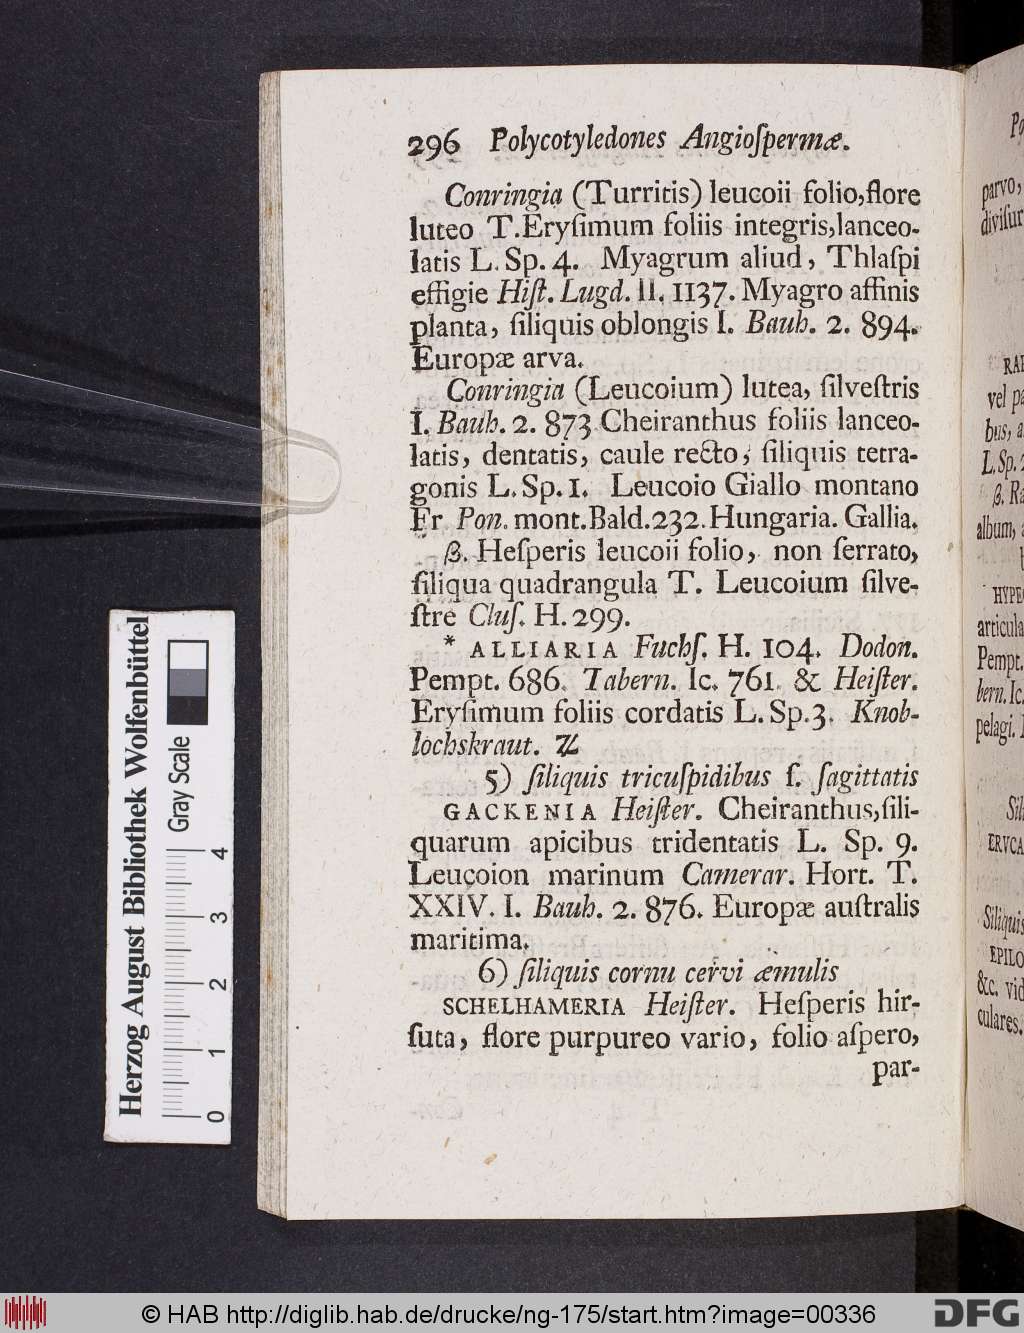 296 Polycotyledones Angioſpermæ.
Conringia (Turritis) leucoii folio, flore
luteo T. Eryſimum foliis integris, lanceo-
latis L. Sp. 4. Myagrum aliud, Thlaſpi
effigie Hiſt. Lugd. II. 1137. Myagro affinis
planta, ſiliquis oblongis I. Bauh. 2. 894.
Europæ arva.
Conringia (Leucoium) lutea, ſilveſtris
I. Bauh. 2. 873 Cheiranthus foliis lanceo-
latis, dentatis, caule recto, ſiliquis tetra-
gonis L. Sp. 1. Leucoio Giallo montano
Fr Pon. mont. Bald. 232. Hungaria. Gallia.
β. Heſperis leucoii folio, non ſerrato,
ſiliqua quadrangula T. Leucoium ſilve-
ſtre Cluſ. H. 299.
* ALLIARIA Fuchſ. H. 104. Dodon.
Pempt. 686. Tabern. Ic. 761. & Heiſter.
Eryſimum foliis cordatis L. Sp. 3. Knob-
lochskraut. ♃
5) ſiliquis tricuſpidibus ſ. ſagittatis
GACKENIA Heiſter. Cheiranthus, ſili-
quarum apicibus tridentatis L. Sp. 9.
Leucoion marinum Camerar. Hort. T.
XXIV. I. Bauh. 2. 876. Europæ auſtralis
maritima.
6) ſiliquis cornu cervi æmulis
SCHELHAMERIA Heiſter. Heſperis hir-
ſuta, flore purpureo vario, folio aſpero,
par-
parvo,
diviſur
vel pa
bus, a
L. Sp. 2
β. Ra
album, a
HYPEC
articula
Pempt.
bern. Ic
pelagi.
Sili
ERVCA
Siliquis
EPILO
&c. vid
culares.
Herzog August Bibliothek Wolfenbüttel
Gray Scale
0 1 2 3 4
© HAB http://diglib.hab.de/drucke/ng-175/start.htm?image=00336
DFG